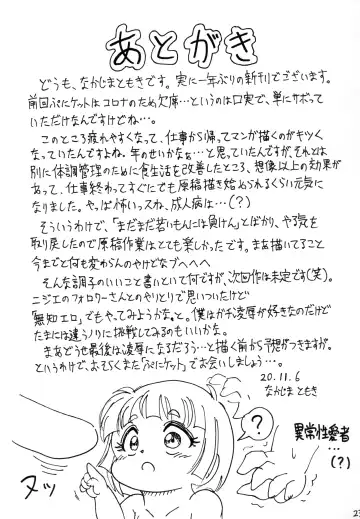 あとがき
どうも、なかじまともきです。実に一年ぶりの新刊でございます。
前回ぷにケットはコロナのため欠席…というのは口実で、単にサボって
いただけなんですけどね…。
このところ疲れやすくなって、仕事から帰ってマンガ描くのがキツく
なっていたんですよね。年のせいかなぁ…と思っていたんですが、それとは
別に体調管理のために食生活を改善したところ、想像以上の効果が
あって、仕事終わってすぐにでも原稿描き始められるくらい元気に
なりました。やっぱ怖いっスね、成人病は…(？)
そういうわけで、「まだまだ若いもんには負けん」とばかり、やる気を
取り戻したので原稿作業はとても楽しかったです。まあ描いてること
今までと何も変わらんのやけどなブヘヘヘ
そんな調子のいいこと書いといて何ですが、次回作は未定です(笑)。
ニジエのフォロワーさんとのやりとりで思いついたけど
「無知エロ」でもやってみようかな。と。僕はガチ凌辱が好きなのだけど
たまには違うノリに挑戦してみるのもいいかな。
まあどうせ最後は凌辱になるだろう…と描く前から予想がつきますが。
というわけで、おそらくまた「ぷにケット」でお会いしましょう…。
20.11.6
なかじま ともき
?
異常性愛者
…(？)
ヌッ